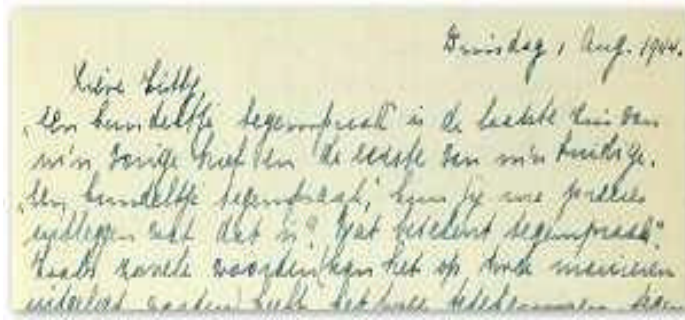 Dinsdag, 1 Aug. 1944.
Lieve Kitty,
"Een bundeltje tegenspraak" is de laatste zin van
m'n vorige brief en de eerste van m'n huidige.
"Een bundeltje tegenspraak," kun jij me precies
uitleggen wat dat is? Wat betekent tegenspraak?
Zoals zovele woorden kan het op twee manieren
uitgelegd worden